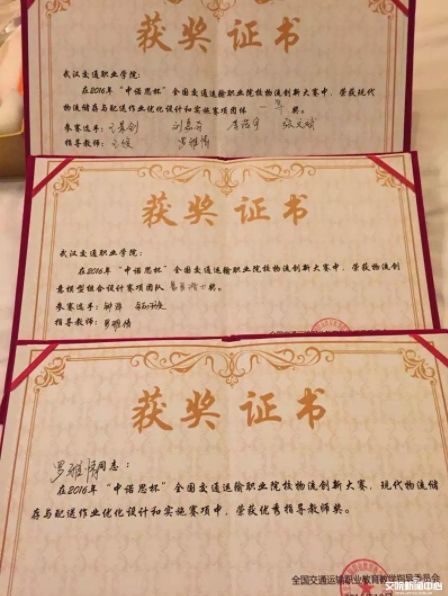 获奖证书
武汉交通职业学院：
在2016年“中诺思杯”全国交通运输职业院校物流创新大赛中，荣获现代
物流储存与配送作业优化设计和实施赛项团体一等奖。
参赛选手：
指导教师：
获奖证书
武汉交通职业学院：
在2016年“中诺思杯”全国交通运输职业院校物流创新大赛中，荣获物流创
意模型组合设计赛项团队奖。
参赛选手：
指导教师：罗雅情
获奖证书
罗雅情同志：
在2016年“中诺思杯”全国交通运输职业院校物流创新大赛，现代物流储
存与配送作业优化设计和实施赛项中，荣获优秀指导教师奖。
全国交通运输职业教育教学指导委员会
交院新闻中心